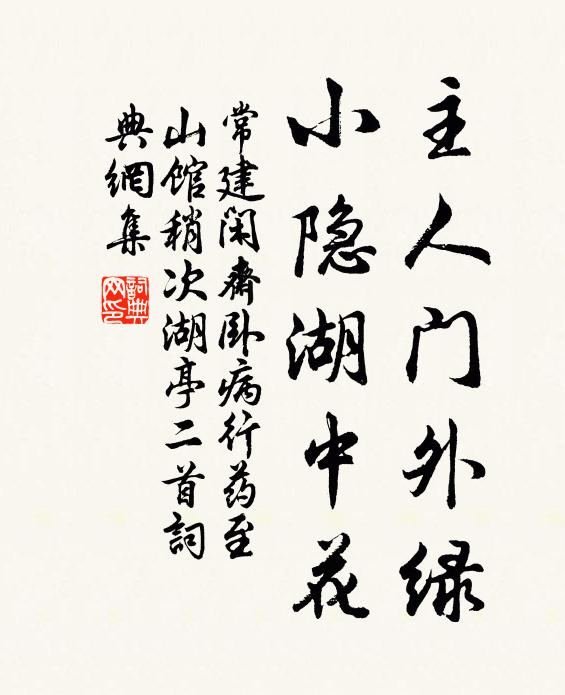 主人门外绿
小隐湖中花
常建闲斋卧病行药至
山馆稍次湖亭二首詞
典網集
詞典网印